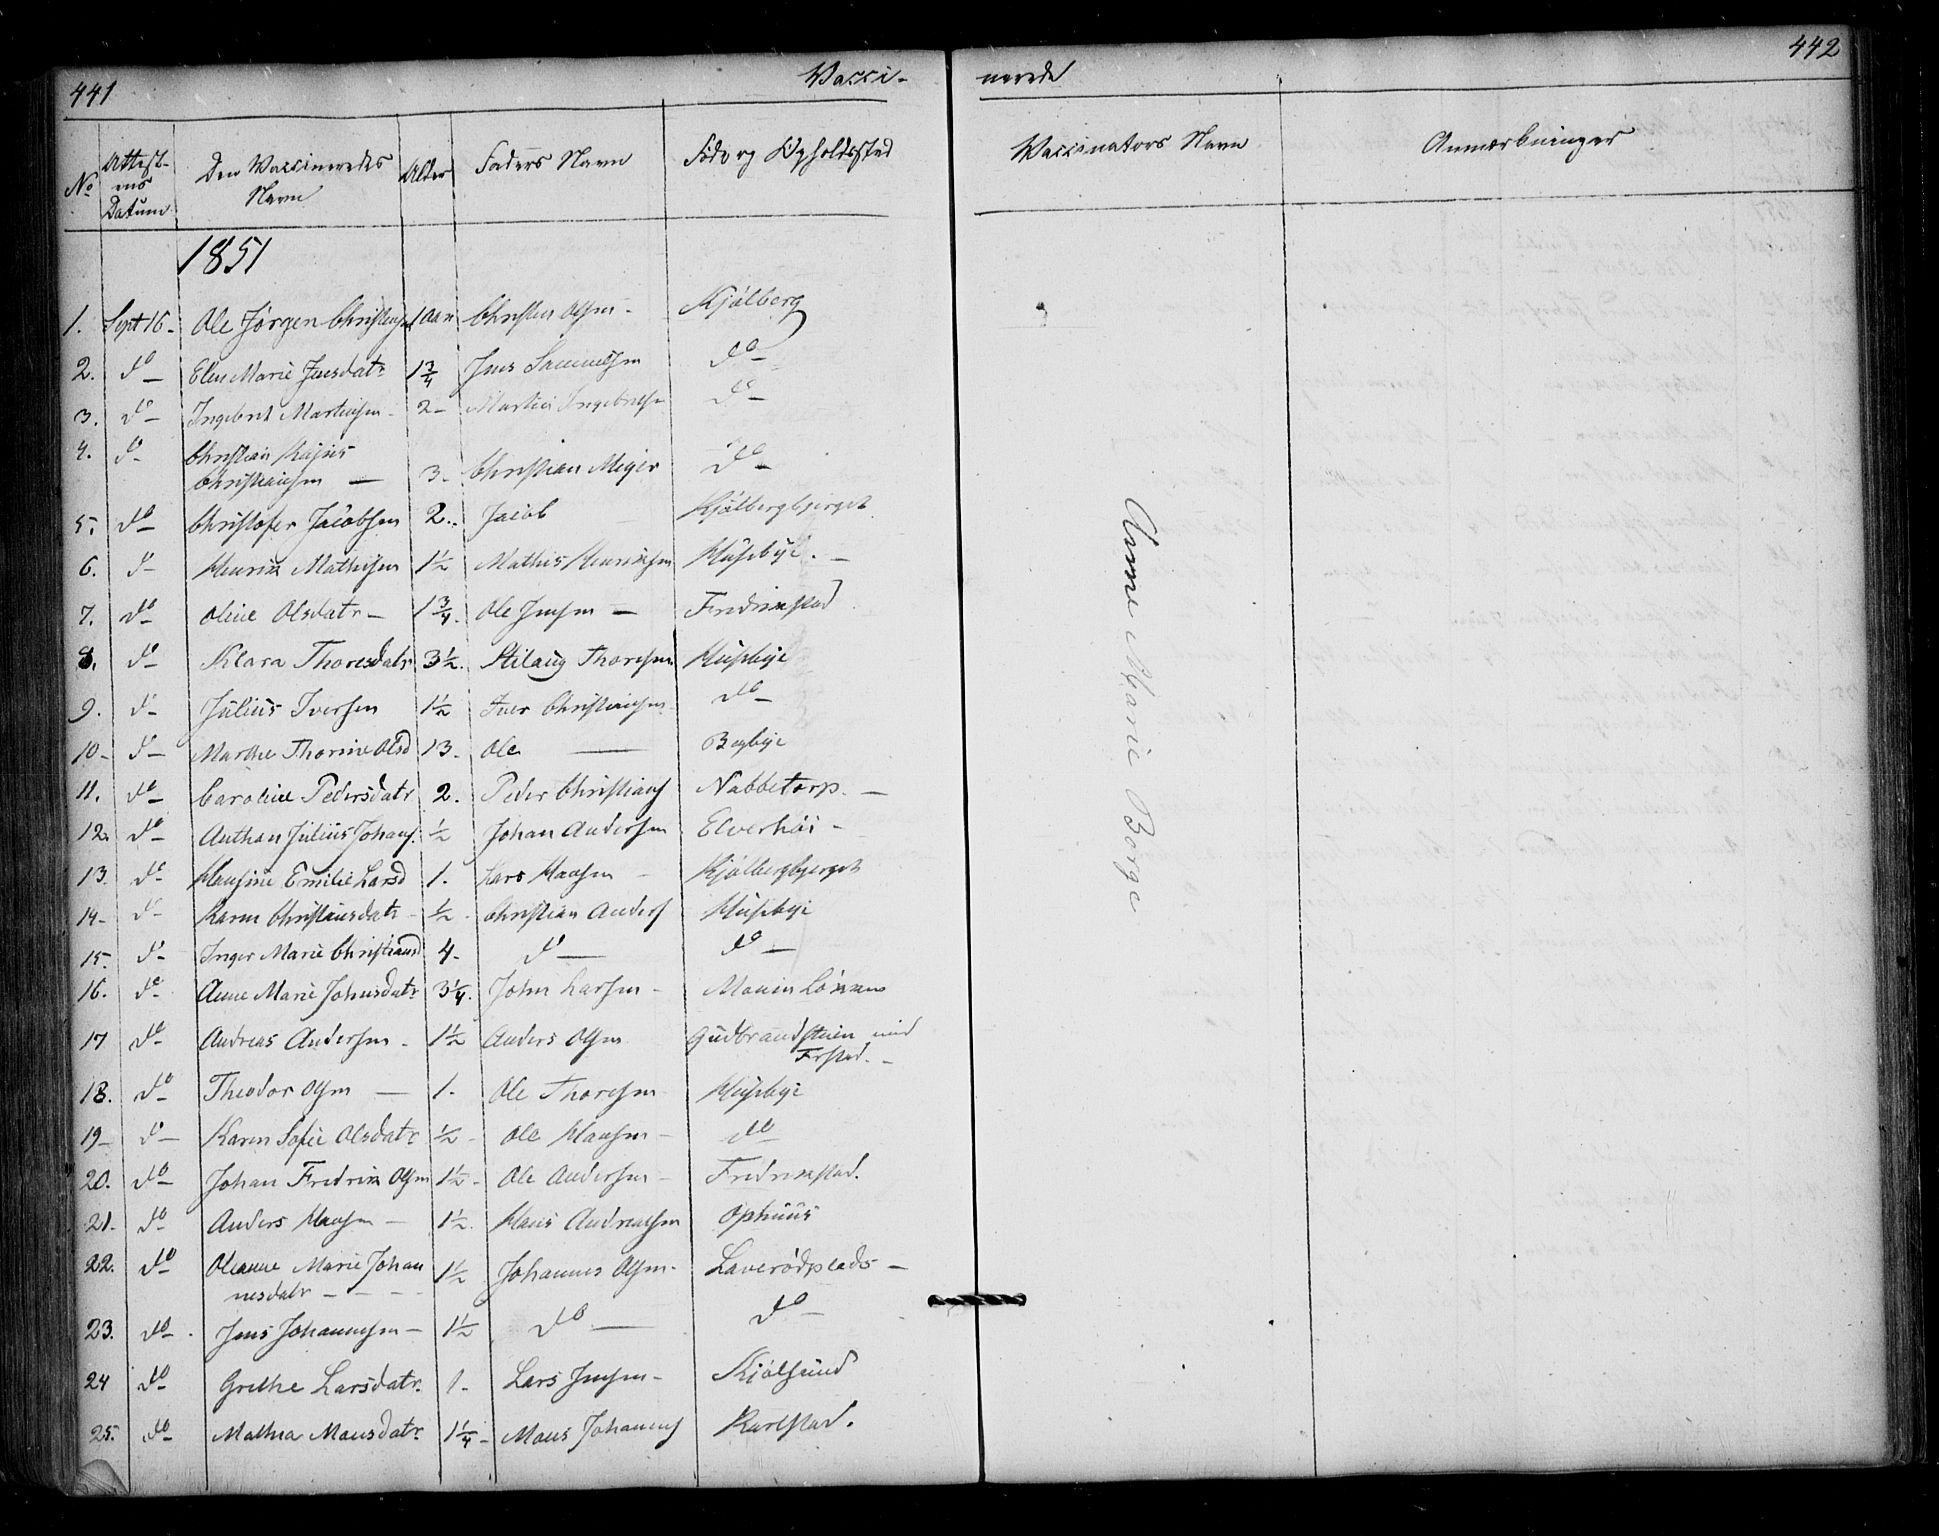 441 Vacci-
nerede 442
No Attest-ens Datum Den Vaccineredes Navn Alder Faders Navn Føde og Opholdssted Vaccinators Navn Anmærkninger
1851
1. Sept 16 - Ole Jørgen Christensen 1 Aar Christen Olsen - Kjølberg
2. do - Elen Marie Jensdatr 1 3/4 Jens Samuelsen do -
3. do - Ingebret Martinsen - 2 - Martin Ingebrets do -
4. do - Christian
Christiansen - 3 - Christian Meyer do -
5. do - Christofer Jacobsen 2. Jacob Kjølbergbjerget
6. do - Henrik Mathisen 1 1/2 Mathis Henriksen Huseby. -
7. do - Oline Olsdatr - 1 3/4. Ole Jensen - Fredrikstad
8. do - Klara Thoresdatr 3 1/2. Stilaug Thoresen Husebye
9. do - Julius Iversen 1 1/2 Iver Christiansen do -
10 - do - Marthe Thorine Olsd 13. Ole - Begbye
11. do - Caroline Pedersdatr 2. Peder Christians Nabbetorp. -
12. do - Anthon Julius Johans. 1/2 Johan Andersen Elverhøi -
13. do - Hansine Emilie Larsd 1. Lars Hansen - Kjølbergbjerget
14 - do - Karen Christiansdatr - 1/2 - Christian Anders Husebye
15. do - Inger Marie Christiansd 4 - do - do -
16. do - Anne Marie Johnsdatr 3 1/4. John Larsen - Moum Løkken
17 do - Andreas Andersen - 1 1/2 Anders Olsen Gudbrandsteien ved
Frstad. -
18. do - Theodor Olsen - 1. Ole Thoresen Husebye
19 - do - Karen Sofie Olsdatr 1/2 - Ole Hansen - do
20. do - Johan Fredrik Olsen 1 1/2 - Ole Andersen - Fredrikstad.
21. do - Anders Hansen - 1 1/2. Hans Andreasen Ophuus
22. do - Oleanne Marie Johan
nesdatr - - - - 1 1/2 Johannes Olsen - Laverødplads -
23. do - Jens Johannesen - 1 1/2 do - do -
24 do - Grethe Larsdatr. 1 - Lars Jensen - Kjølsund
25. do - Mathea Mansdatr 1 1/4 - Mans Johannes Karlstad.
Anne Marie Borge